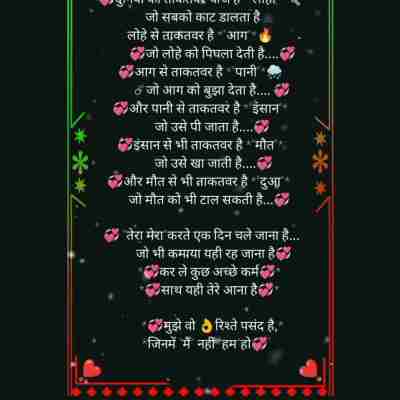 💞दुनिया की ताकतवर चीज है "लोहा" 🔪
जो सबको काट डालता है
लोहे से ताकतवर है "आग"🔥
💞जो लोहे को पिघला देती है....💞
💞आग से ताकतवर है "पानी"🌧
जो आग को बुझा देता है.... 💞
💞और पानी से ताकतवर है "इंसान"
जो उसे पी जाता है....💞
💞इंसान से भी ताकतवर है "मौत"
जो उसे खा जाती है....💞
💞और मौत से भी ताकतवर है "दुआ"
जो मौत को भी टाल सकती है...💞
💞 "तेरा मेरा करते एक दिन चले जाना है...
जो भी कमाया यही रह जाना है💞
*💞कर ले कुछ अच्छे कर्म💞*
*💞साथ यही तेरे आना है💞*
*💞मुझे वो 👌रिश्ते पसंद है,*
*जिनमें "मैं" नहीं "हम" हो💞*